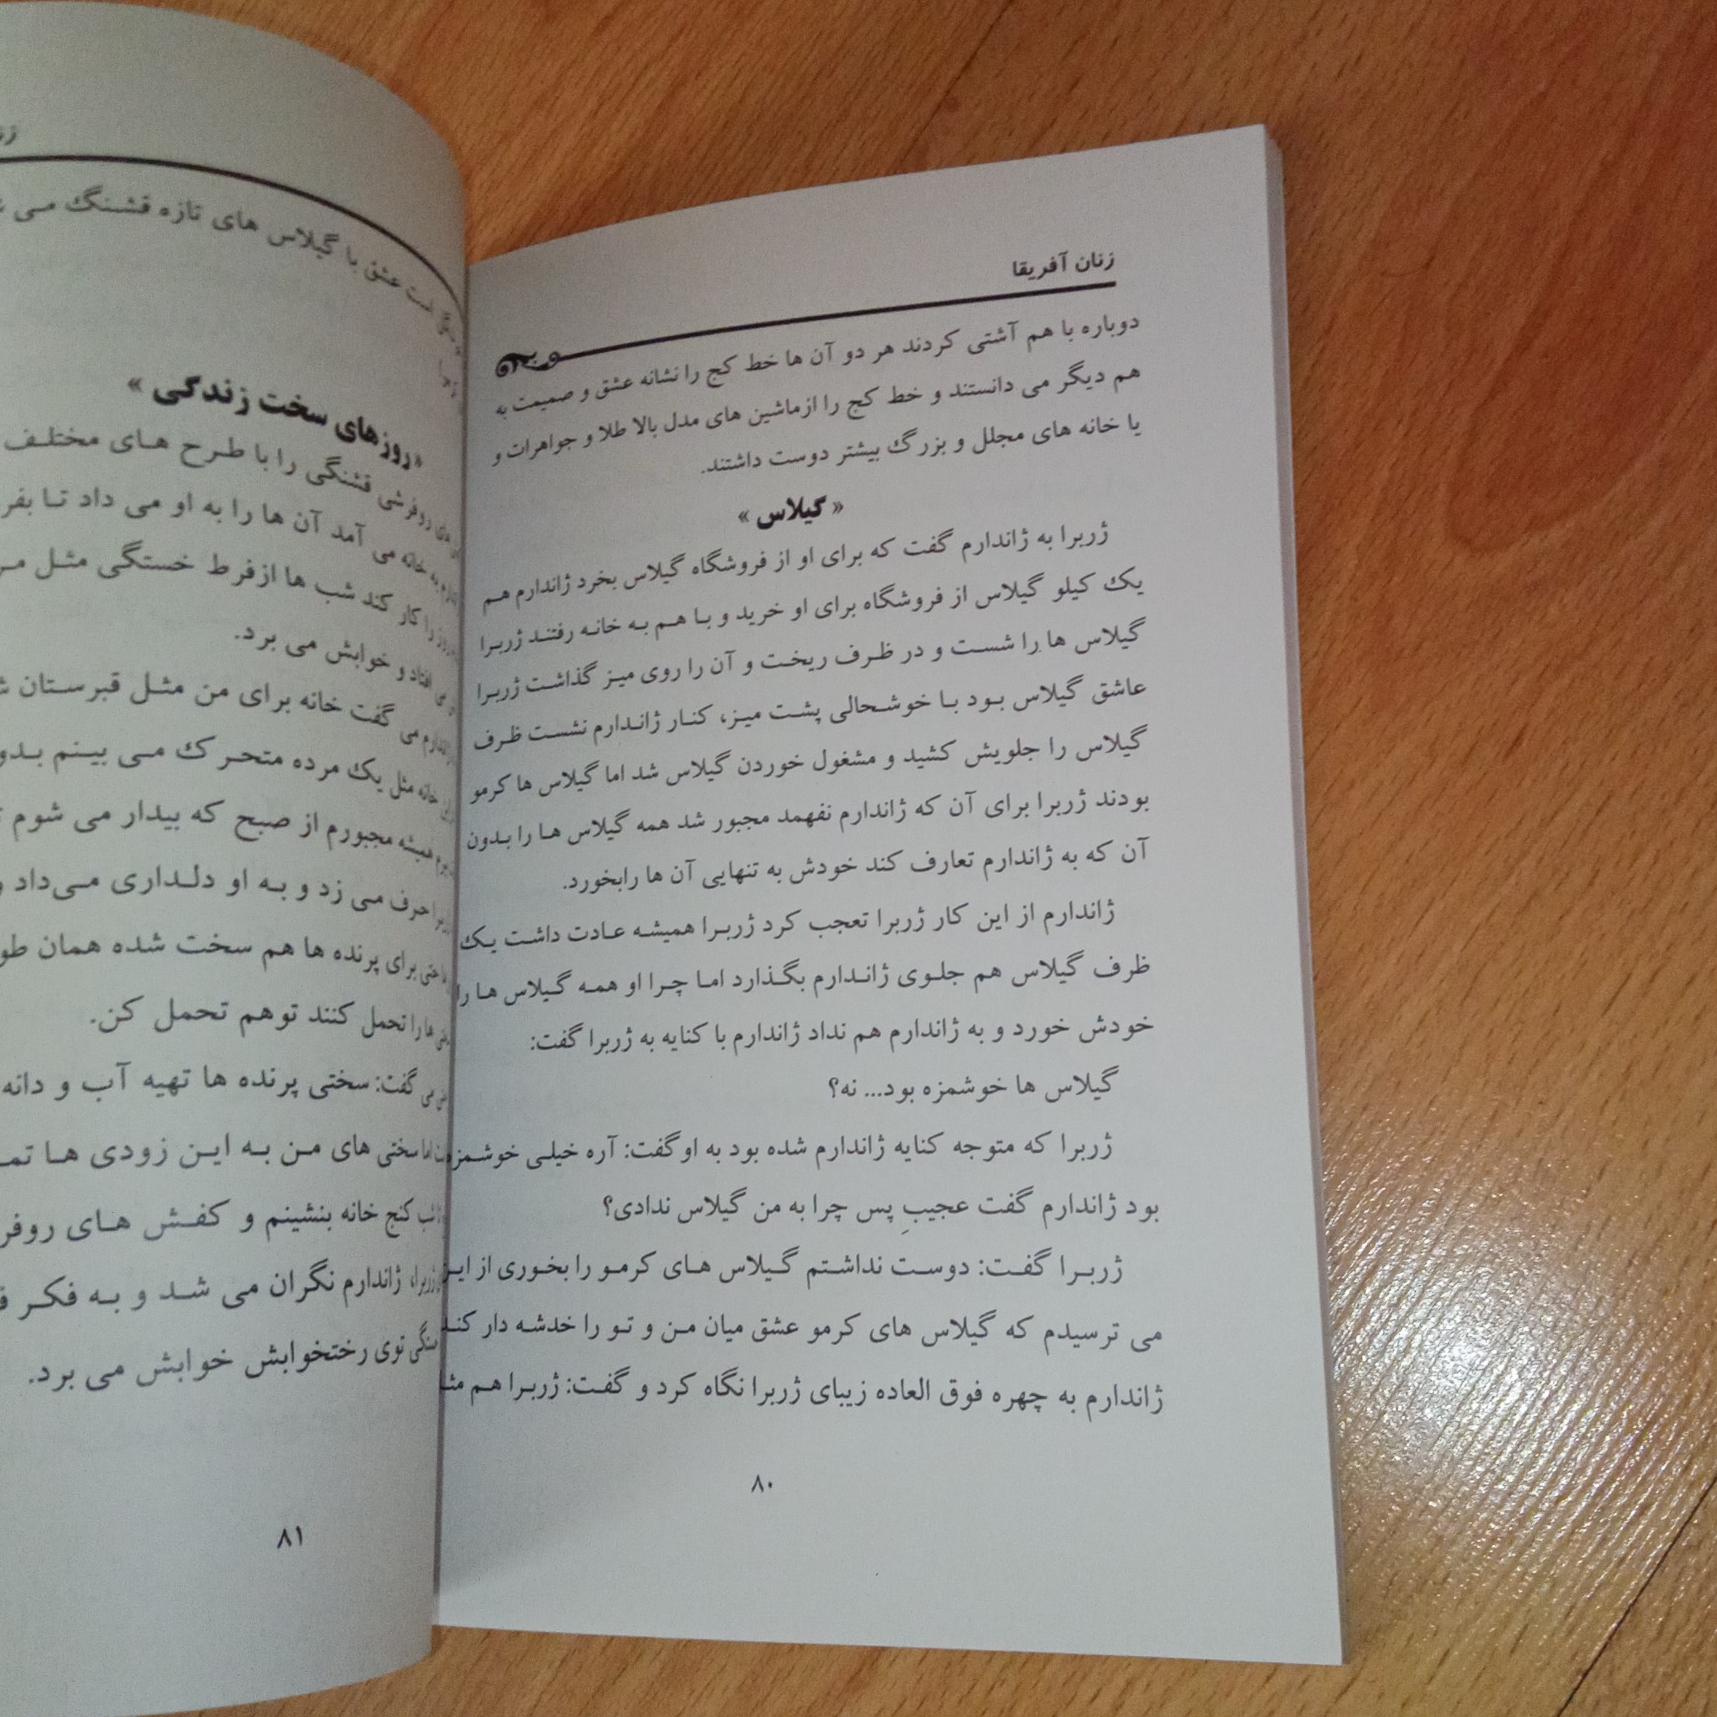 زنان آفریقا
دوباره با هم آشتی کردند هر دو آن ها خط کج را نشانه عشق و صمیمت به
هم دیگر می دانستند و خط کج را ازماشین های مدل بالا طلا و جواهرات و
یا خانه های مجلل و بزرگ بیشتر دوست داشتند.
« گیلاس »
ژربرا به ژاندارم گفت که برای او از فروشگاه گیلاس بخرد ژاندارم هم
یک کیلو گیلاس از فروشگاه برای او خرید و با هم به خانه رفتند ژربرا
گیلاس ها را شست و در ظرف ریخت و آن را روی میز گذاشت ژربرا
عاشق گیلاس بود با خوشحالی پشت میز، کنار ژاندارم نشست ظرف
گیلاس را جلویش کشید و مشغول خوردن گیلاس شد اما گیلاس ها کرمو
بودند ژربرا برای آن که ژاندارم نفهمد مجبور شد همه گیلاس ها را بدون
آن که به ژاندارم تعارف کند خودش به تنهایی آن ها رابخورد.
ژاندارم از این کار ژربرا تعجب کرد ژربرا همیشه عادت داشت یک
ظرف گیلاس هم جلوی ژاندارم بگذارد اما چرا او همه گیلاس ها را
خودش خورد و به ژاندارم هم نداد ژاندارم با کنایه به ژربرا گفت:
گیلاس ها خوشمزه بود... نه؟
ژربرا که متوجه کنایه ژاندارم شده بود به اوگفت: آره خیلی خوشمزه
بود ژاندارم گفت عجیبِ پس چرا به من گیلاس ندادی؟
ژربرا گفت: دوست نداشتم گیلاس های کرمو را بخوری از این
می ترسیدم که گیلاس های کرمو عشق میان من و تو را خدشه دار کند
ژاندارم به چهره فوق العاده زیبای ژربرا نگاه کرد و گفت: ژربرا هم
۸۰
است عشق با گیلاس های تازه قشنگ می
«روزهای سخت زندگی »
روفرشی قشنگی را با طرح های مختلف
به خانه می آمد آن ها را به او می داد تا
را کار کند شب ها ازفرط خستگی مثل
می افتاد و خوابش می برد.
می گفت خانه برای من مثل قبرستان
خانه مثل یک مرده متحرک می بینم
همیشه مجبورم از صبح که بیدار می شوم
حرف می زد و به او دلداری می‌داد
حتی برای پرنده ها هم سخت شده همان
ها را تحمل کنند توهم تحمل کن.
می گفت: سختی پرنده ها تهیه آب و دانه
اما سختی های من به این زودی ها
کنج خانه بنشینم و کفش های
ژربرا، ژاندارم نگران می شد و به فکر
توی رختخوابش خوابش می برد.
۸۱